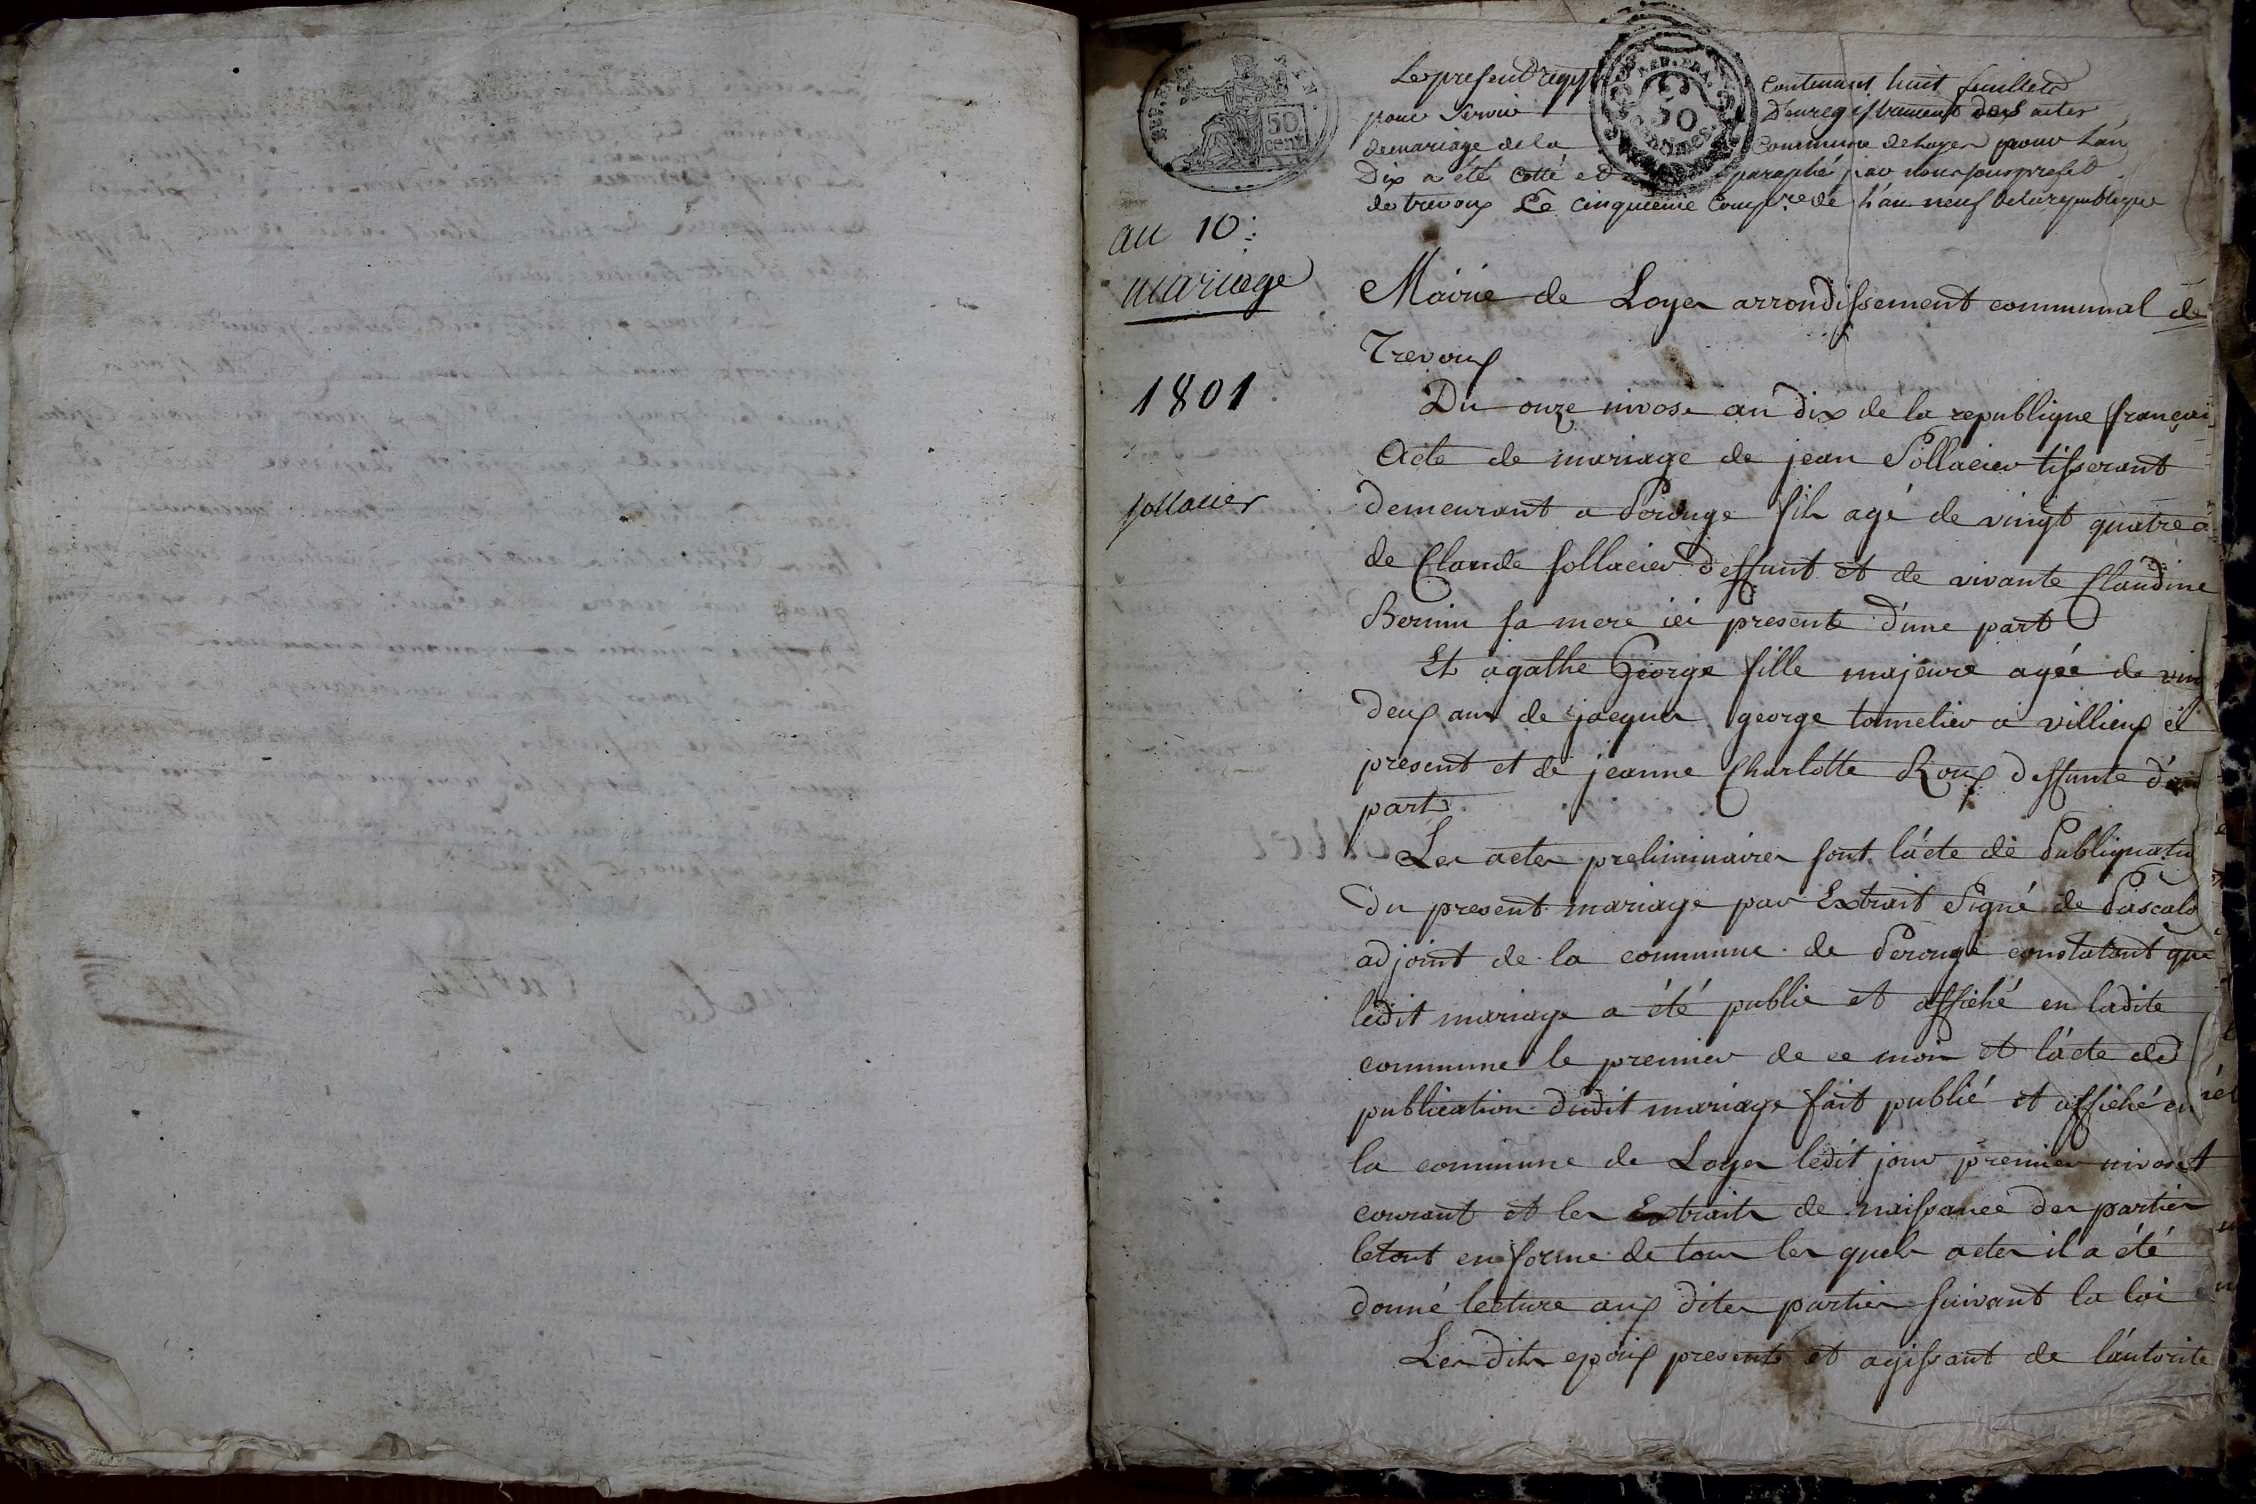 Le present regist contenant huit feuillets
pour servir D'enregistrement des actes
de mariage de la commune de Loyes pour L'an
Dix a été cotté et paraphé par nous sous prefet
de trevoux Le cinquieme Comp.re de L'an neuf de la republique
an 10:
mariage
Mairie de Loyes arrondissement communal de
Trevoux
1801
Du onze nivose an dix de la republique françai
Acte de mariage de jean Sollacier tisserant
Sollacier
demeurant a Perouge fils agé de vingt quatre a
de Claude Sollacier deffunt et de vivante Claudine
Bernin sa mere ici presente d'une part
Et agathe George fille majeure agée de vin
deux ans de jacques george tonnelier a villieux ici
present et de jeanne Charlotte Roux deffunte d'au
part
Les actes preliminaires sont l'acte de Publiquatio
du present mariage par Extrait Signé de Pascal
adjoint de la commune de Perouge constatant que
ledit mariage a été publie et affiché en ladite
commune le premier de ce mois et l'acte de
publication dudit mariage fait publié et affiché en
la commune de Loyes ledit jour premier nivose
courant et les Extraits de naissance des parties
le tout en forme de tous les quels actes il a été
donné lecture aux dites parties suivant la loi
Les dits epoux presents et agissant de l'autorite
REP. FRA.
50
cent.
REP. FRA.
50